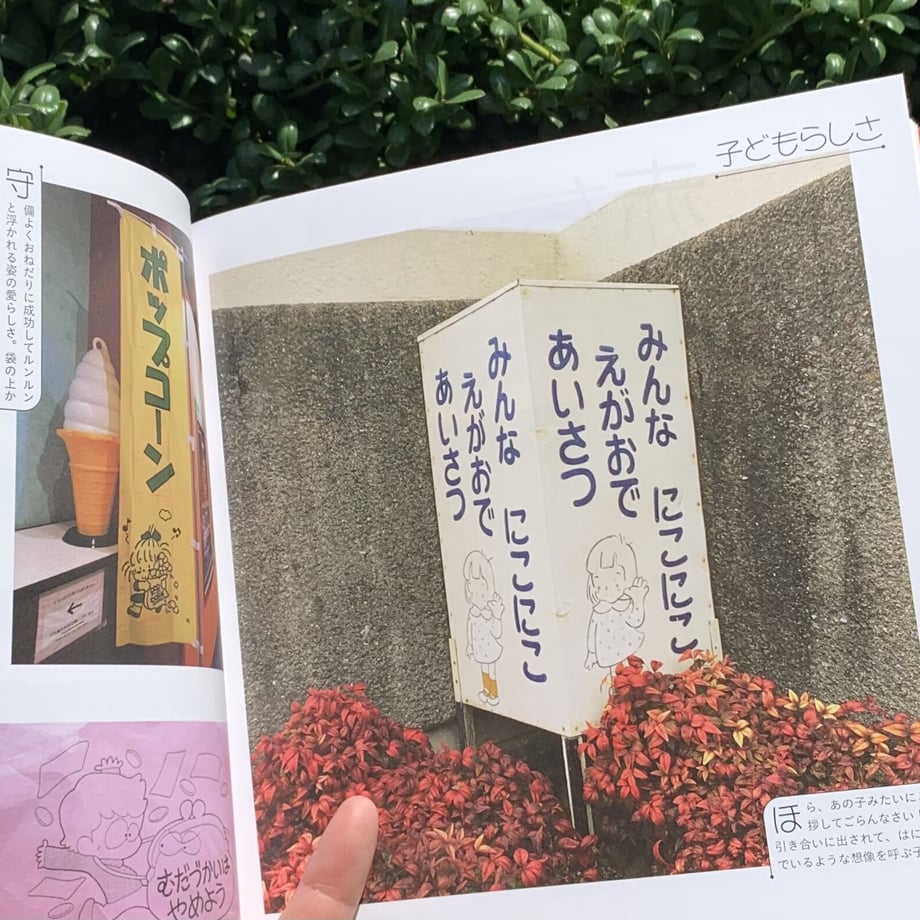 守
備よくおねだりに成功してルンルン
と浮かれる姿の愛らしさ。袋の上か
ポップコーン
むだづかいは
やめよう
子どもらしさ
みんな にこにこ
えがおで
あいさつ
みんな にこにこ
えがおで
あいさつ
ほ
ら、あの子みたいに
拶してごらんなさい
引き合いに出されて、はに
でいるような想像を呼ぶ子